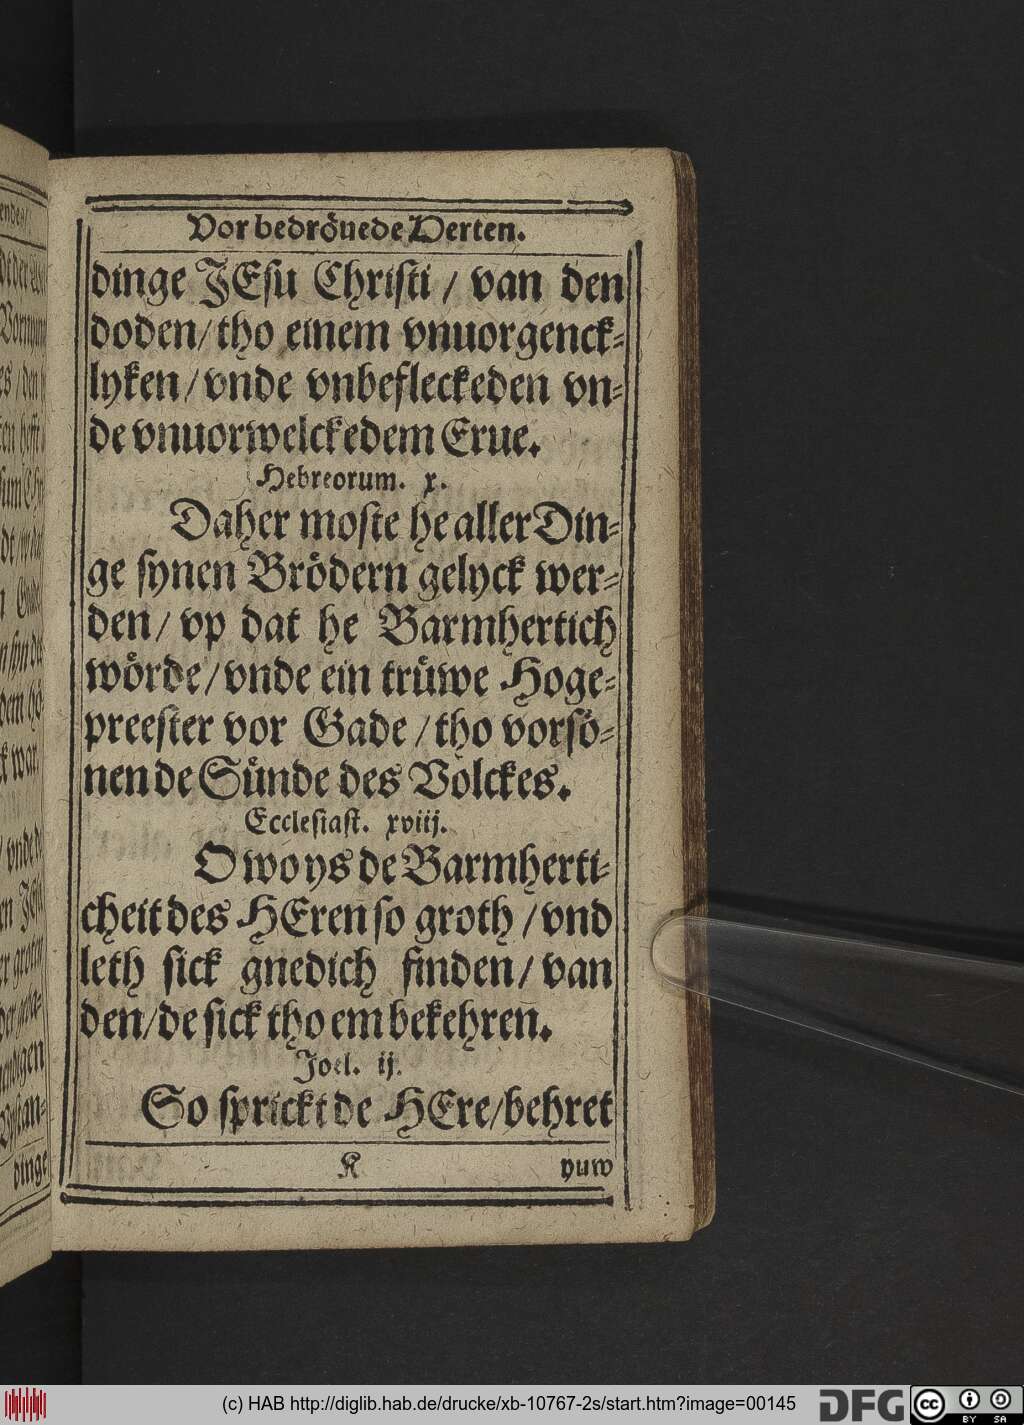 Vor bedröuede Herten.
dinge JEsu Christi / van den
doden / tho einem vnuorgenck⸗
lyken / vnde vnbefleckeden vn⸗
de vnuorwelckedem Erue.
Hebreorum. x.
Daher moste he aller Din⸗
ge synen Brödern gelyck wer⸗
den / vp dat he Barmhertich
wörde / vnde ein trüwe Hoge⸗
preester vor Gade / tho vorsö⸗
nen de Sünde des Volckes.
Ecclesiast. xviij.
O wo ys de Barmherti⸗
cheit des HEren so groth / vnd
leth sick gnedich finden / van
den / de sick tho em bekehren.
Joel. ij.
So sprickt de HEre / behret
K
yuw
dinge
(c) HAB http://diglib.hab.de/drucke/xb-10767-2s/start.htm?image=00145
DFG
cc
BY SA